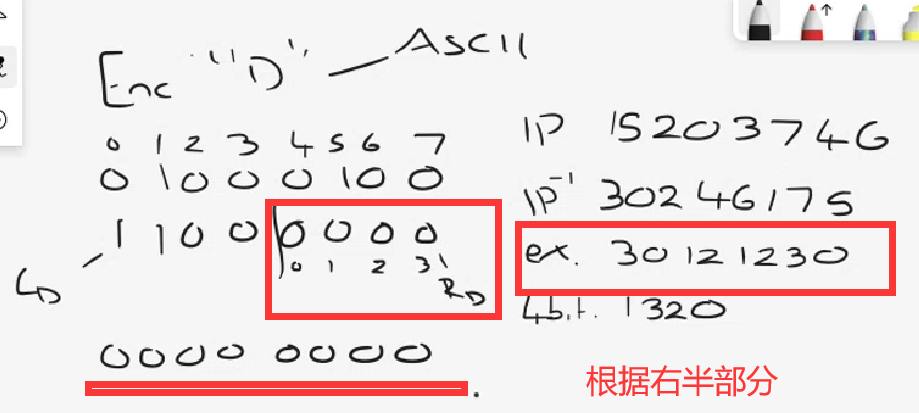 Enc "D" — ASCII
0 1 2 3 4 5 6 7
0 1 0 0 0 1 0 0
1 1 0 0 0 0 0 0
0 1 2 3
L0 R0
0000 0000.
IP 15203746
IP⁻¹ 30246175
ex. 30121230
4bit. 1320
根据右半部分